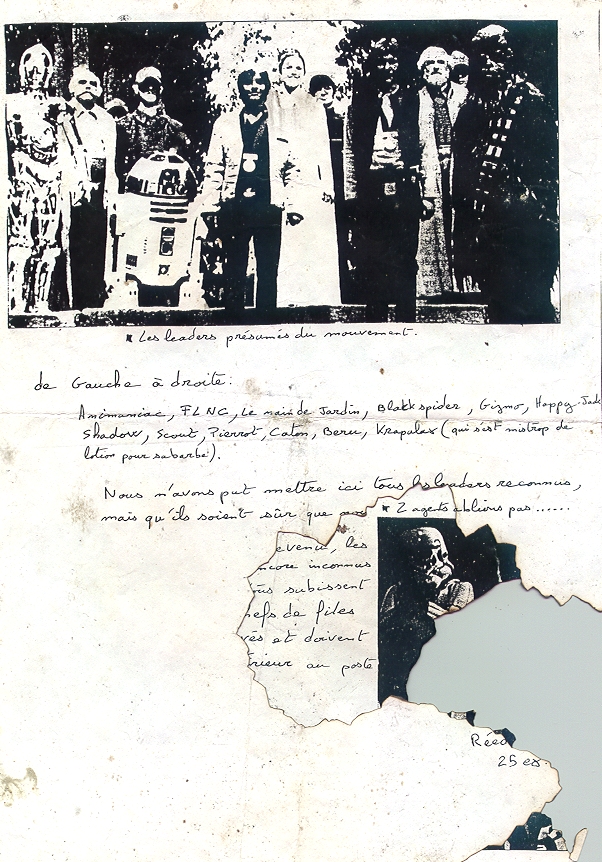 * Les leaders présumés du mouvement.
de Gauche à droite:
Animaniac, FLNC, Le nain de Jardin, Blakk spider, Gizmo, Happy-Jade
Shadow, Scout, Pierrot, Caton, Beru, Krapulax (qui s'est mis trop de
lotion pour sa barbe).
Nous n'avons put mettre ici tous les leaders reconnus,
mais qu'ils soient sûr que
* 2 agents
pas......
evenu, les
ncore inconnus
us subissent
efs de files
vés et doivent
rieur au poste
Rééd
25 ex